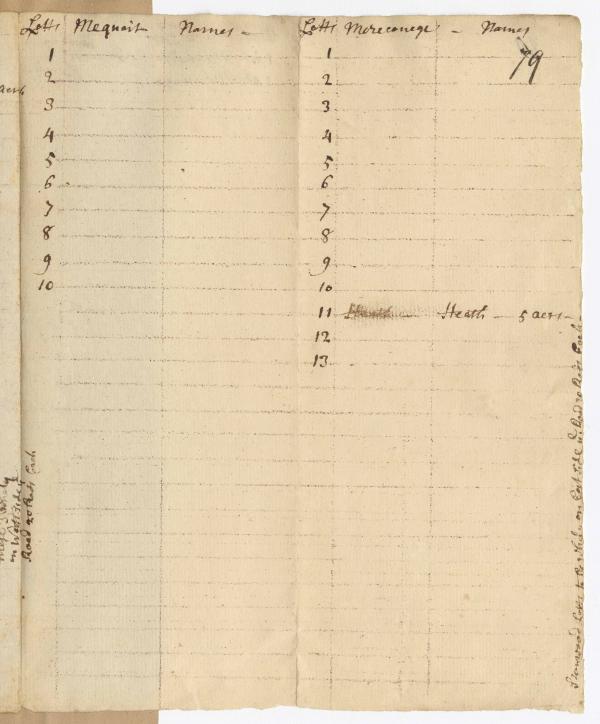 Lotts Mequait Names - Lotts Merecanege - Names
79
1 1
2 2
3 3
4 4
5 5
6 6
7 7
8 8
9 9
10 10
11 Heath - Heath - 5 acrs -
12
13
acrs
on West Side
Road 20 Rods Each
Lotts to be wide on East side Road 20 Rods Each